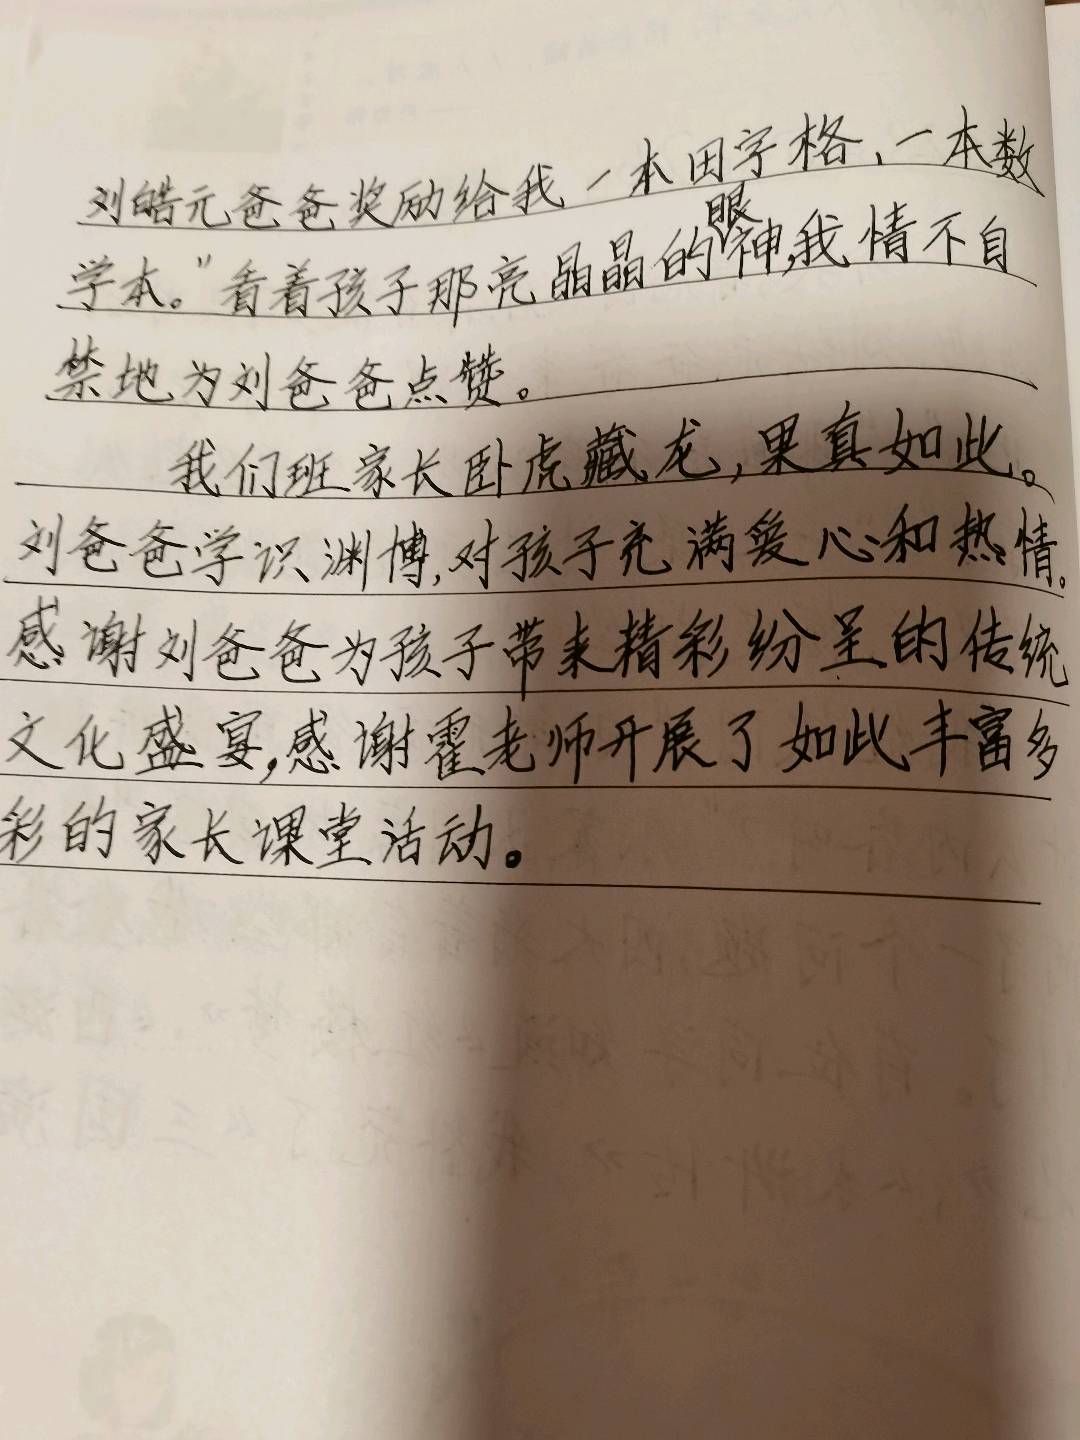 刘皓元爸爸奖励给我一本田字格、一本数
学本。"看着孩子那亮晶晶的眼神,我情不自
禁地为刘爸爸点赞。
我们班家长卧虎藏龙,果真如此。
刘爸爸学识渊博,对孩子充满爱心和热情。
感谢刘爸爸为孩子带来精彩纷呈的传统
文化盛宴,感谢霍老师开展了如此丰富多
彩的家长课堂活动。